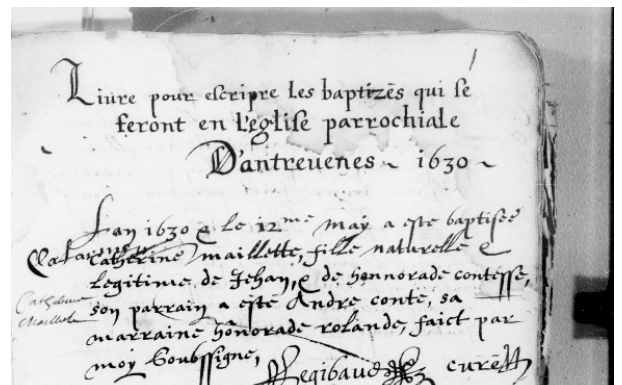 1
Liure pour escripre les baptizés qui se
feront en l'eglise parrochiale
D'antreuenes ~ 1630 ~
Lan 1630 & le 12me may a este baptisée
Catherine maillette, fille naturelle &
legitime de Jehan, & de honnorade contesse,
Catherine
Maillete
son parrain a esté Andre conte, sa
marraine honorade rolande, faict par
moy soubssigne,
Regibaud curé